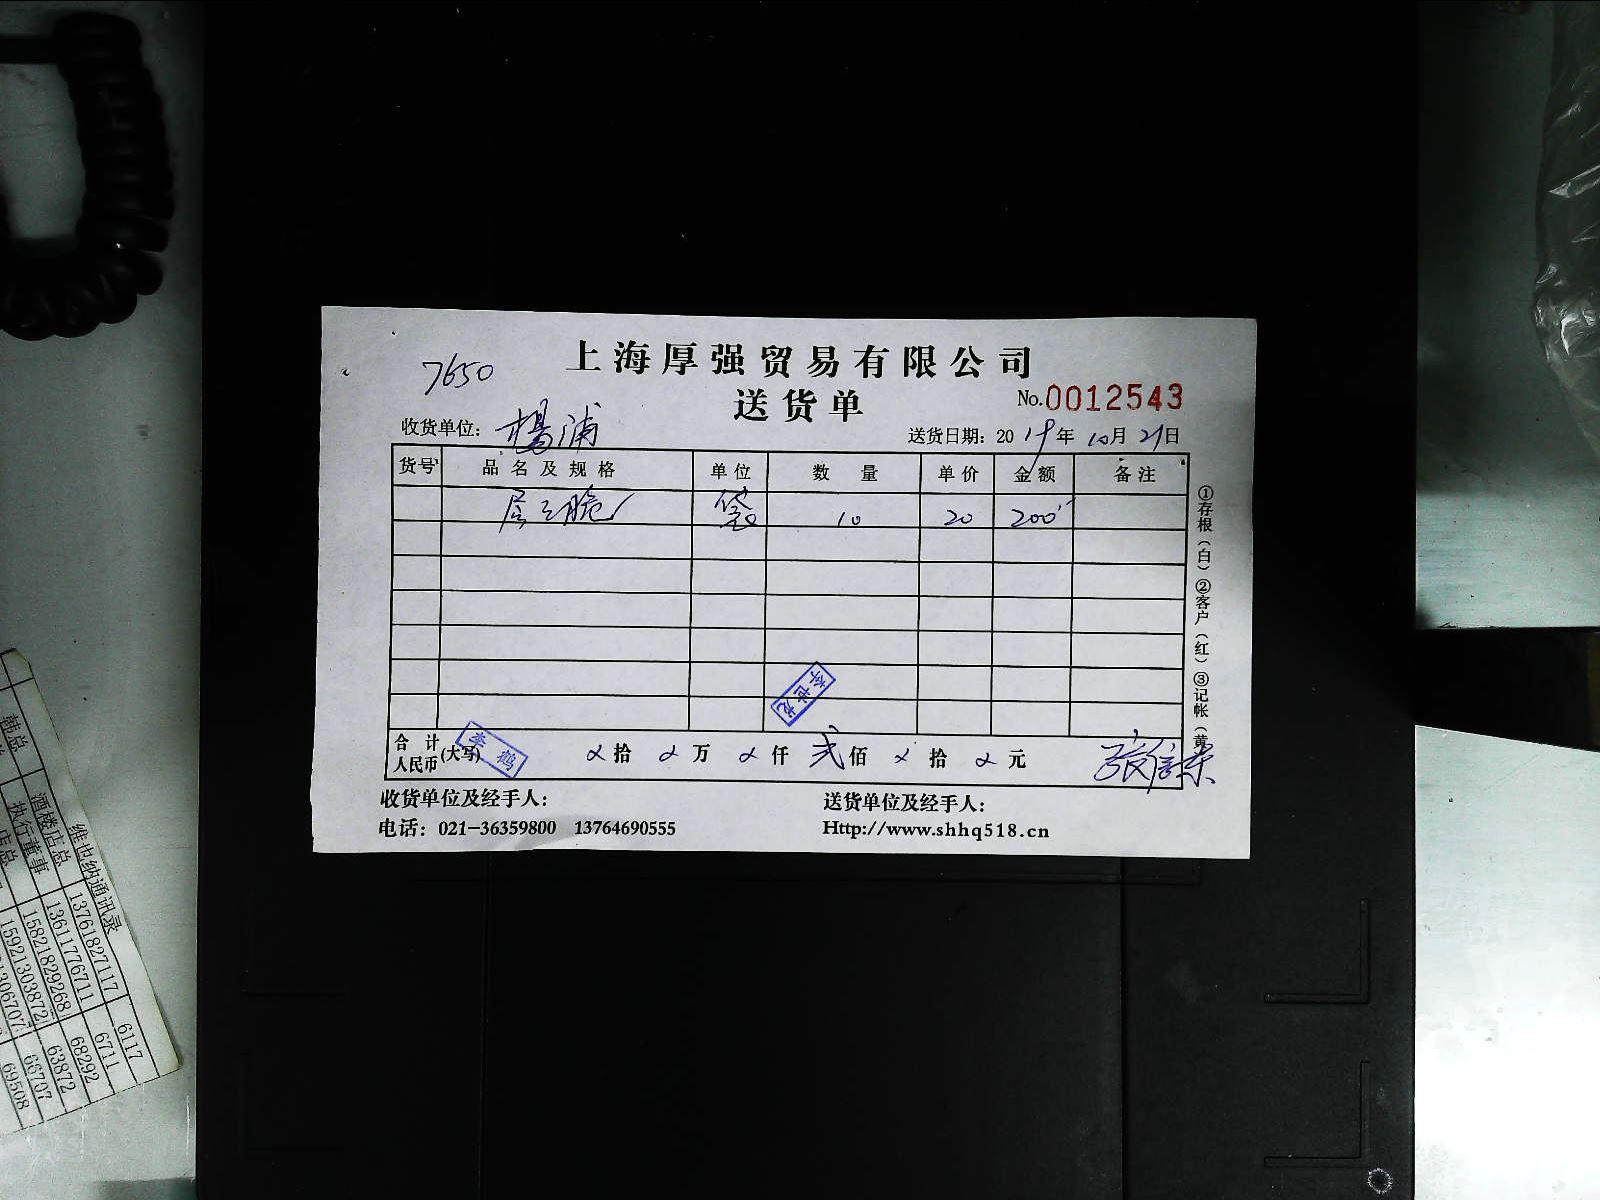 上海厚强贸易有限公司
7650
送货单
No.0012543
收货单位: 楊浦
送货日期: 2019年10月21日
货号 品名及规格 单位 数量 单价 金额 备注
层层脆 袋 10 20 200
①存根（白）②客户（红）③记帐（黄
李世龙
合计人民币(大写) 拾 万 仟 贰佰 拾 元
李鹤
张信来
收货单位及经手人:
送货单位及经手人:
电话: 021-36359800 13764690555
Http://www.shhq518.cn
维也纳通讯录
韩总 13761827117 6117
酒楼店总 13611776711 6711
执行董事 15821829268 68292
店总 15921303872 63872
306707 66707
69508